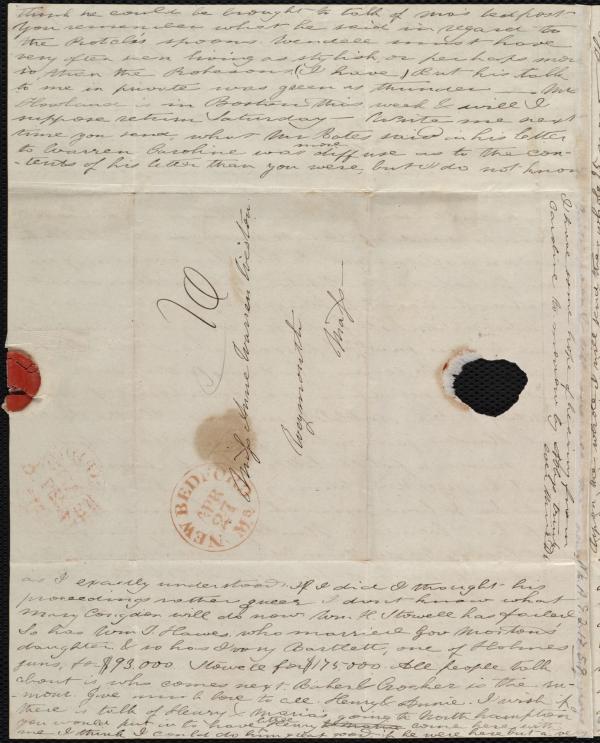 think he could be brought to talk of Mrs bedpost
You remember what he said in regard to
the Rotch's spoons. Wendell must have
very often seen living as stylish or perhaps more
so than the Robesons (I have) But his talk
to me in private was green as thunder — Mr
Howland is in Boston this week & will I
suppose return Saturday — Write me next
time you send, what Mr Bates said in his letter
to Warren Caroline was more diffuse as to the con-
tents of his letter than you were, but I do not know
I have some hope of hearing from
Caroline to morrow by
10
Miss Anne Warren Weston
Weymouth
Mass
NEW BEDFORD Ms
APR
27
as I exactly understood. If I did I thought his
proceedings rather queer I don't know what
Mary Congdon will do now Wm H. Stowell has failed
So has Wm T. Hawes, who married Gov Mortons
daughter & so has Ivory Bartlett, one of Holmes
juns, for $93.000. Stowell for $175.000. All people talk
about is who comes next. Baker & Crocker is the ru-
mour. Give much love to all. Henry & Annie. I wish if
there is talk of Henry & Maria's going to North hampton
you would put in to have come here and see
me I think I could do him great good if he were here but a